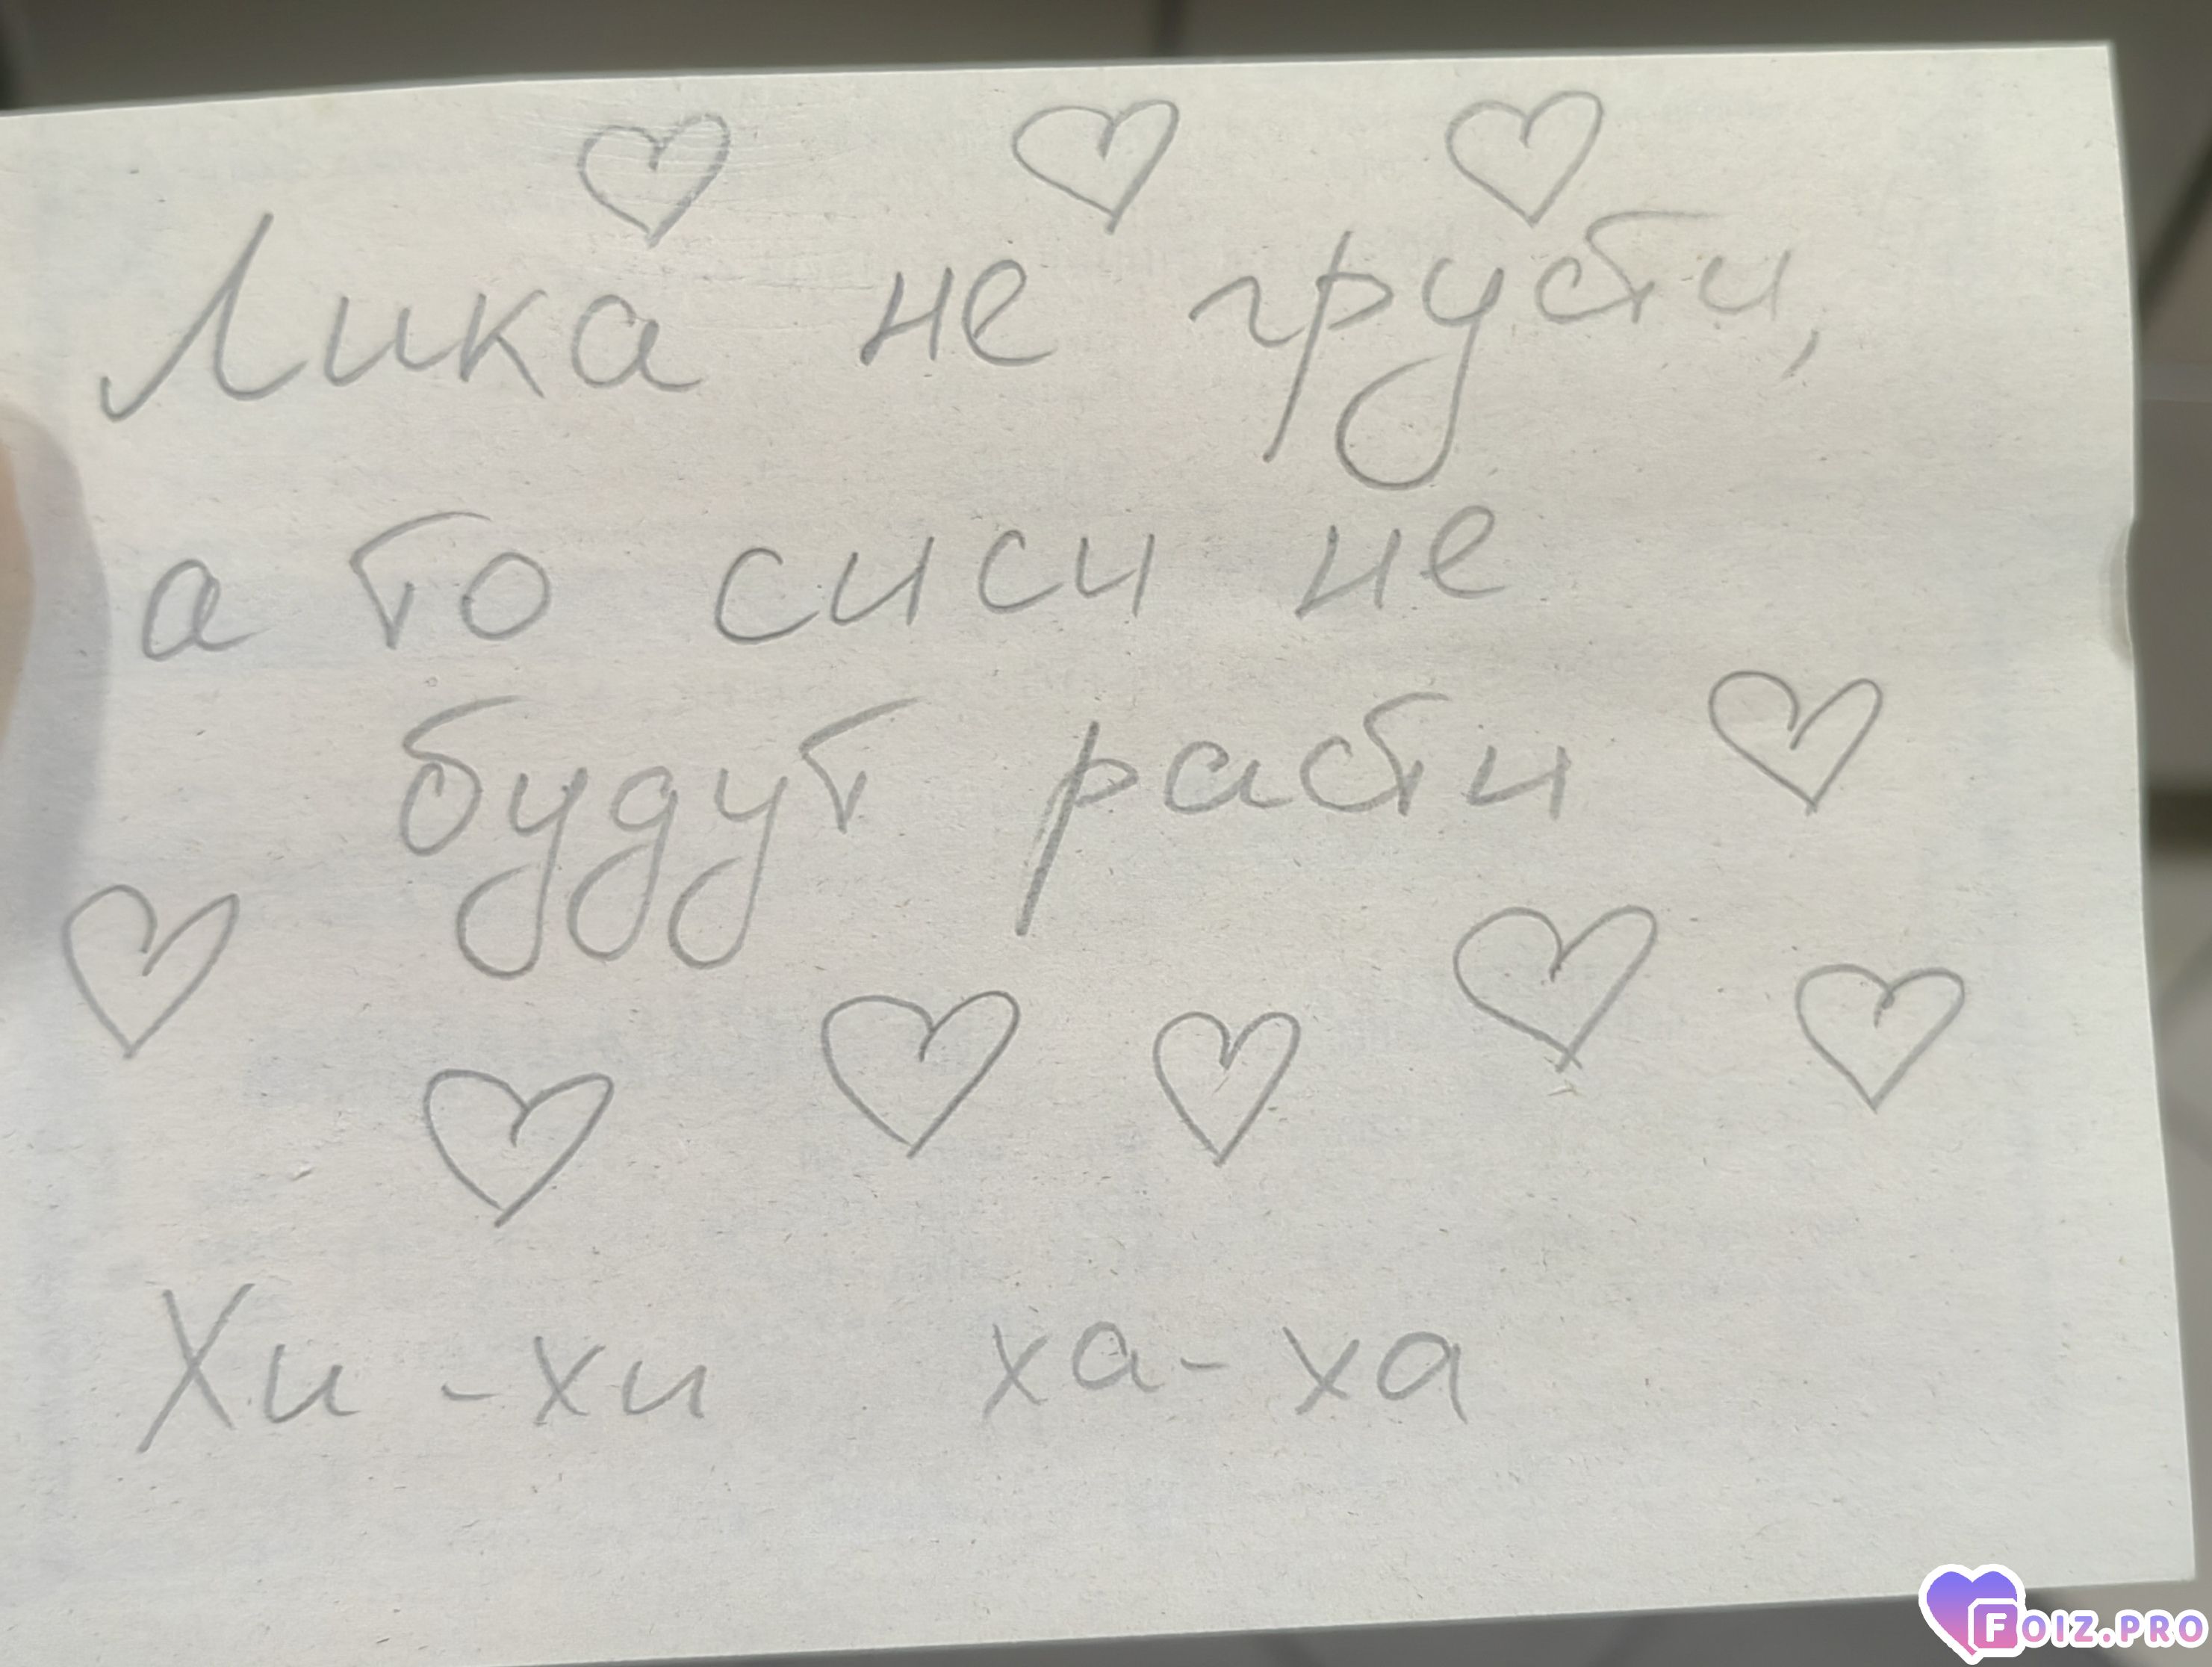 Лика не грусти,
а то сиси не
будут расти
Хи-хи ха-ха
FOIZ.PRO